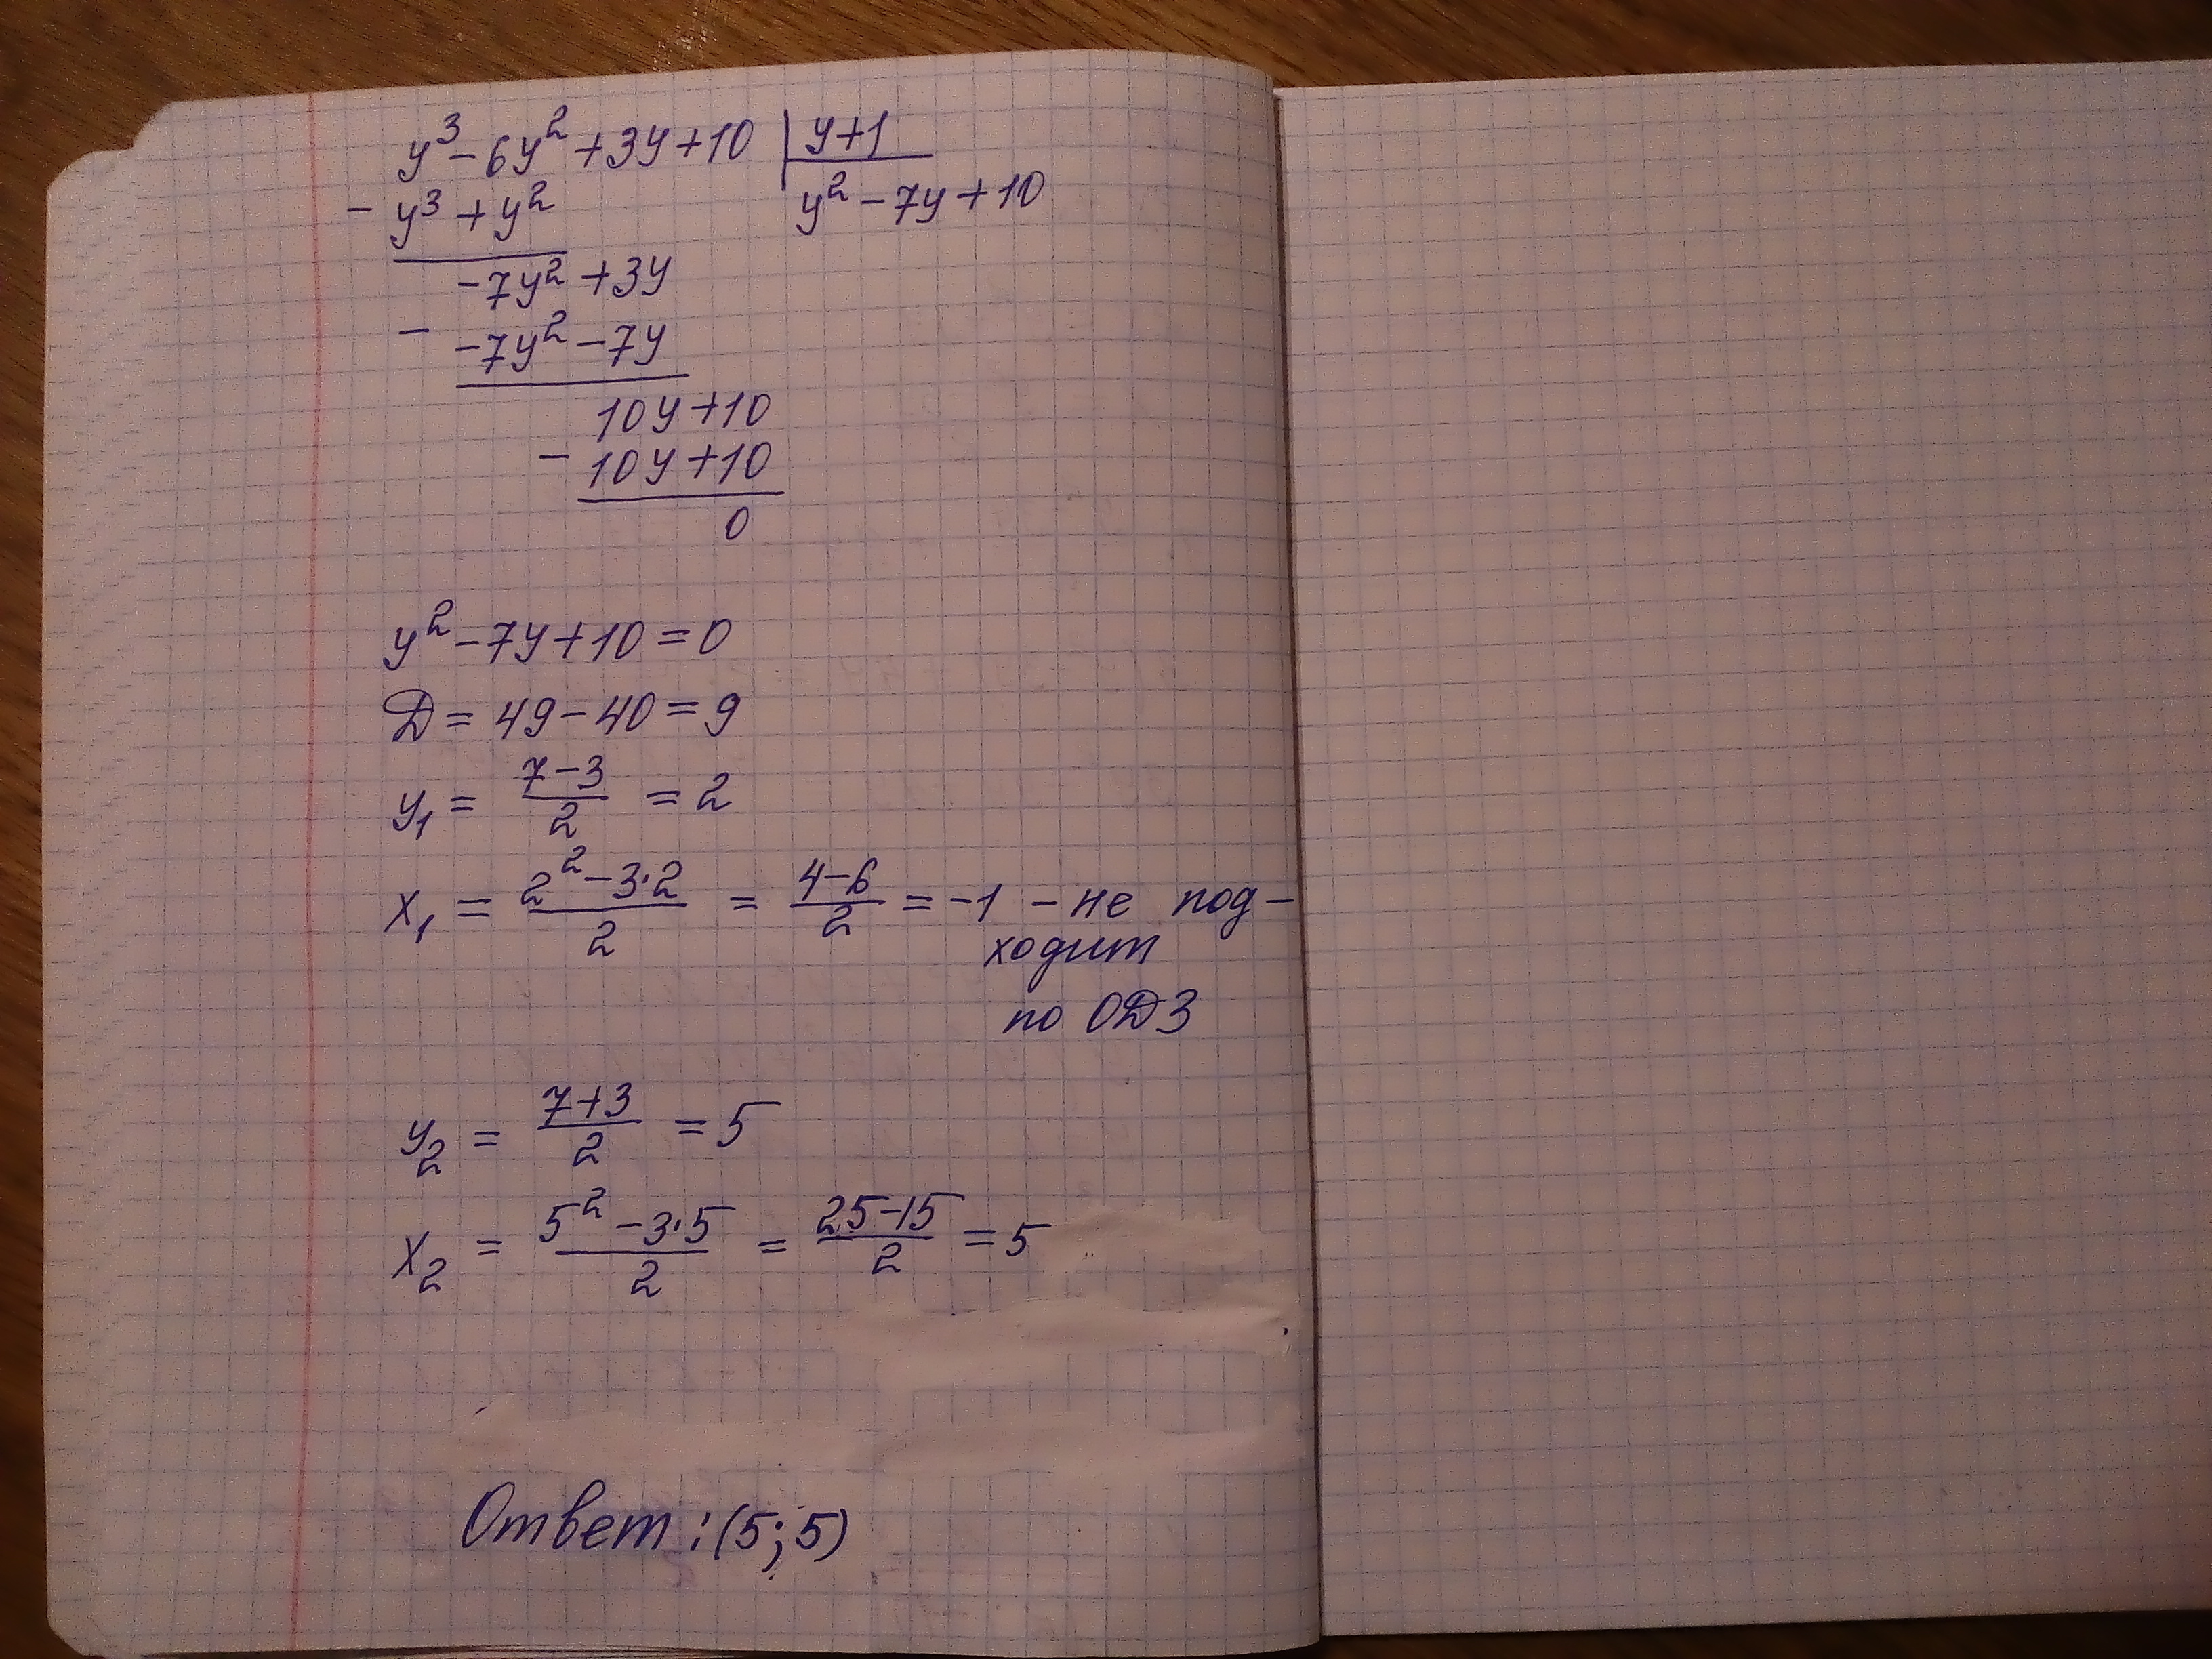 y³ - 6y² + 3y + 10 | y + 1
- y³ + y² y² - 7y + 10
-7y² + 3y
- -7y² - 7y
10y + 10
- 10y + 10
0
y² - 7y + 10 = 0
D = 49 - 40 = 9
y₁ = (7 - 3)/2 = 2
x₁ = (2² - 3·2)/2 = (4 - 6)/2 = -1 - не под-
ходит
по ОДЗ
y₂ = (7 + 3)/2 = 5
x₂ = (5² - 3·5)/2 = (25 - 15)/2 = 5
Ответ: (5; 5)